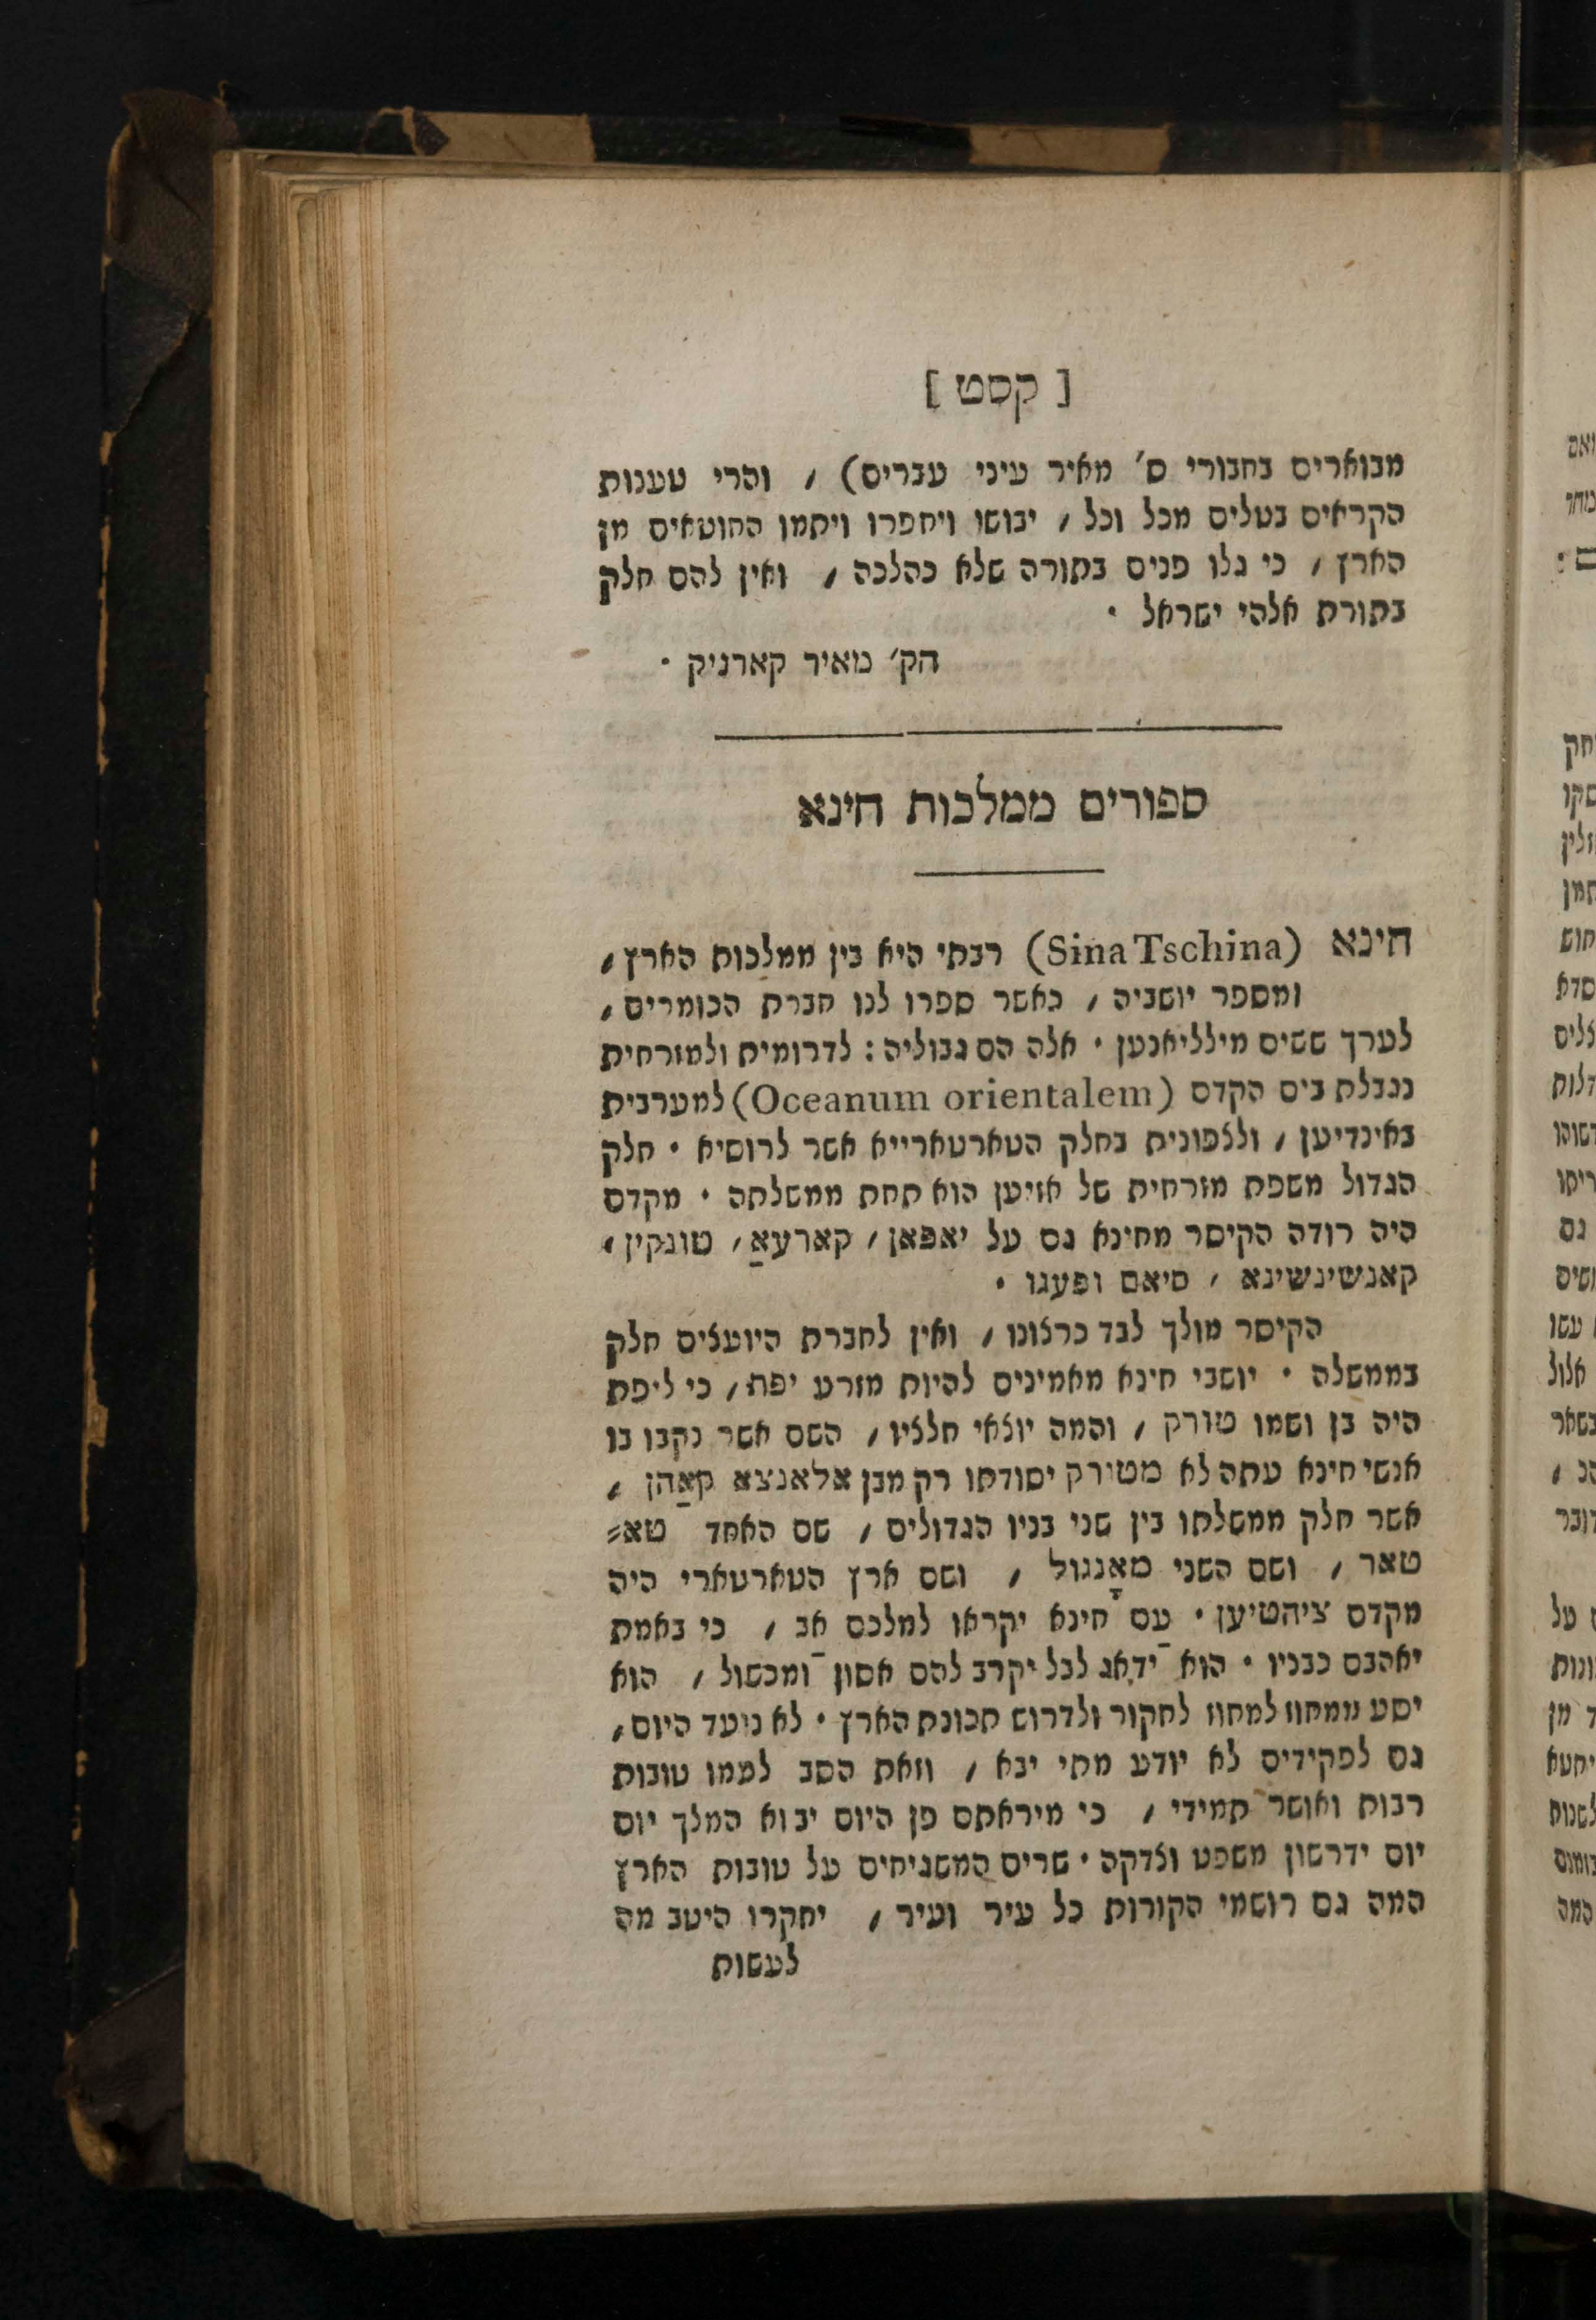 [ קסט ]
מבוארים בחבורי ס׳ מאיר עיני עברים) , והרי טענות
הקראים בטלים מכל וכל , יבושו ויחפרו ויתמו החוטאים מן
הארץ , כי גלו פנים בתורה שלא כהלכה , ואין להם חלק
בתורת אלהי ישראל .
הק׳ מאיר קארניק .
ספורים ממלכות חינא
חינא (Sina Tschina) רבתי היא בין ממלכות הארץ ,
ומספר יושביה , כאשר ספרו לנו חברת הכומרים ,
לערך ששים מילליאנען . אלה הם גבוליה : לדרומית ולמזרחית
נגבלת בים הקדם (Oceanum orientalem) למערבית
באינדיען , ולצפונית בחלק הטארטארייא אשר לרוסיא . חלק
הגדול משפת מזרחית של אזיען הוא תחת ממשלתה . מקדם
היה רודה הקיסר מחינא גם על יאפאן , קארעאַ , טונקין ,
קאנשינשינא , סיאם ופעגו .
הקיסר מולך לבד כרצונו , ואין לחברת היועצים חלק
בממשלה . יושבי חינא מאמינים להיות מזרע יפת , כי ליפת
היה בן ושמו טורק , והמה יוצאי חלציו , השם אשר נקבו בו
אנשי חינא עתה לא מטורק יסודתו רק מבן אלאנצא קאַהן ,
אשר חלק ממשלתו בין שני בניו הגדולים , שם האחד טא⸗
טאר , ושם השני מאָנגול , ושם ארץ הטארטארי היה
מקדם ציהטיען . עם חינא יקראו למלכם אב , כי באמת
יאהבם כבניו . הוא ידאג לבל יקרב להם אסון ומכשול , הוא
יסע ממחוז למחוז לחקור ולדרוש תכונת הארץ . לא נועד היום ,
גם לפקידים לא יודע מתי יבא , וזאת הסב לעמו טובות
רבות ואושר תמידי , כי מיראתם פן היום יבוא המלך יום
יום ידרשון משפט וצדקה . שרים המשגיחים על טובות הארץ
המה גם רושמי הקורות כל עיר ועיר , יחקרו היטב מה
לעשות